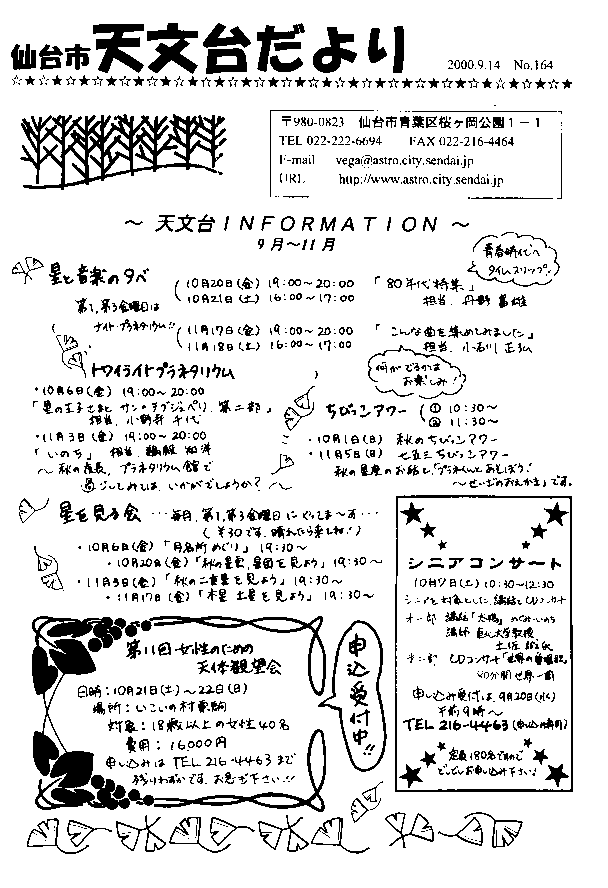 仙台市 天文台だより 2000.9.14 No.164
〒980-0823 仙台市青葉区桜ヶ岡公園1-1
TEL 022-222-6694 FAX 022-216-4464
E-mail vega@astro.city.sendai.jp
URL http://www.astro.city.sendai.jp
～ 天文台INFORMATION ～
9月～11月
青春時代へ
タイムスリップ!
星と音楽の夕べ
第1,第3金曜日は
ナイト・プラネタリウム!!
10月20日(金) 19:00～20:00 「80年代特集」
10月21日(土) 16:00～17:00 担当.
11月17日(金) 19:00～20:00 「こんな曲を集めてみました」
11月18日(土) 16:00～17:00 担当.小石川正弘
何がでるかは
お楽しみ!
トワイライトプラネタリウム
・10月6日(金) 19:00～20:00
「星の王子さまと サン・テグジュペリ 第二部」
担当.小野寺 千代
・11月3日(金) 19:00～20:00
「いのち」 担当.
～ 秋の夜長、プラネタリウム館で
過ごしてみては、いかがでしょうか? ～
ちびっこアワー (① 10:30～
② 11:30～
・10月1日(日) 秋のちびっこアワー
・11月5日(日) 七五三ちびっこアワー
秋の星座のお話と、「プラネくんとあそぼう!
～せいざのおえかき」です。
星を見る会 …毎月、第1,第3金曜日にやってま～す…
(¥30です。晴れたら来てね!)
・10月6日(金)「月名所めぐり」 19:30～
・10月20日(金)「秋の星雲,星団を見よう」 19:30～
・11月3日(金)「秋の二重星を見よう」 19:30～
・11月17日(金)「木星 土星を見よう」 19:30～
シニアコンサート
10月7日(土) 10:30～12:30
シニアを対象とした 講話とCDコンサート
オ一部 講話「太陽」
講師 東北大学教授
オ二部 CDコンサート「世界の
40分間世界一周
申し込み受付は、9月20日(水)
午前9時～
TEL 216-4463(申込み専用)
定員180名ですので
どしどしお申し込み下さい!
第11回 女性のための
天体観望会
日時:10月21日(土)～22日(日)
場所:いこいの村栗駒
対象:18歳以上の女性40名
費用:16000円
申し込みは TEL 216-4463まで
残りわずかです。お急ぎ下さい!!
申込受付中!!